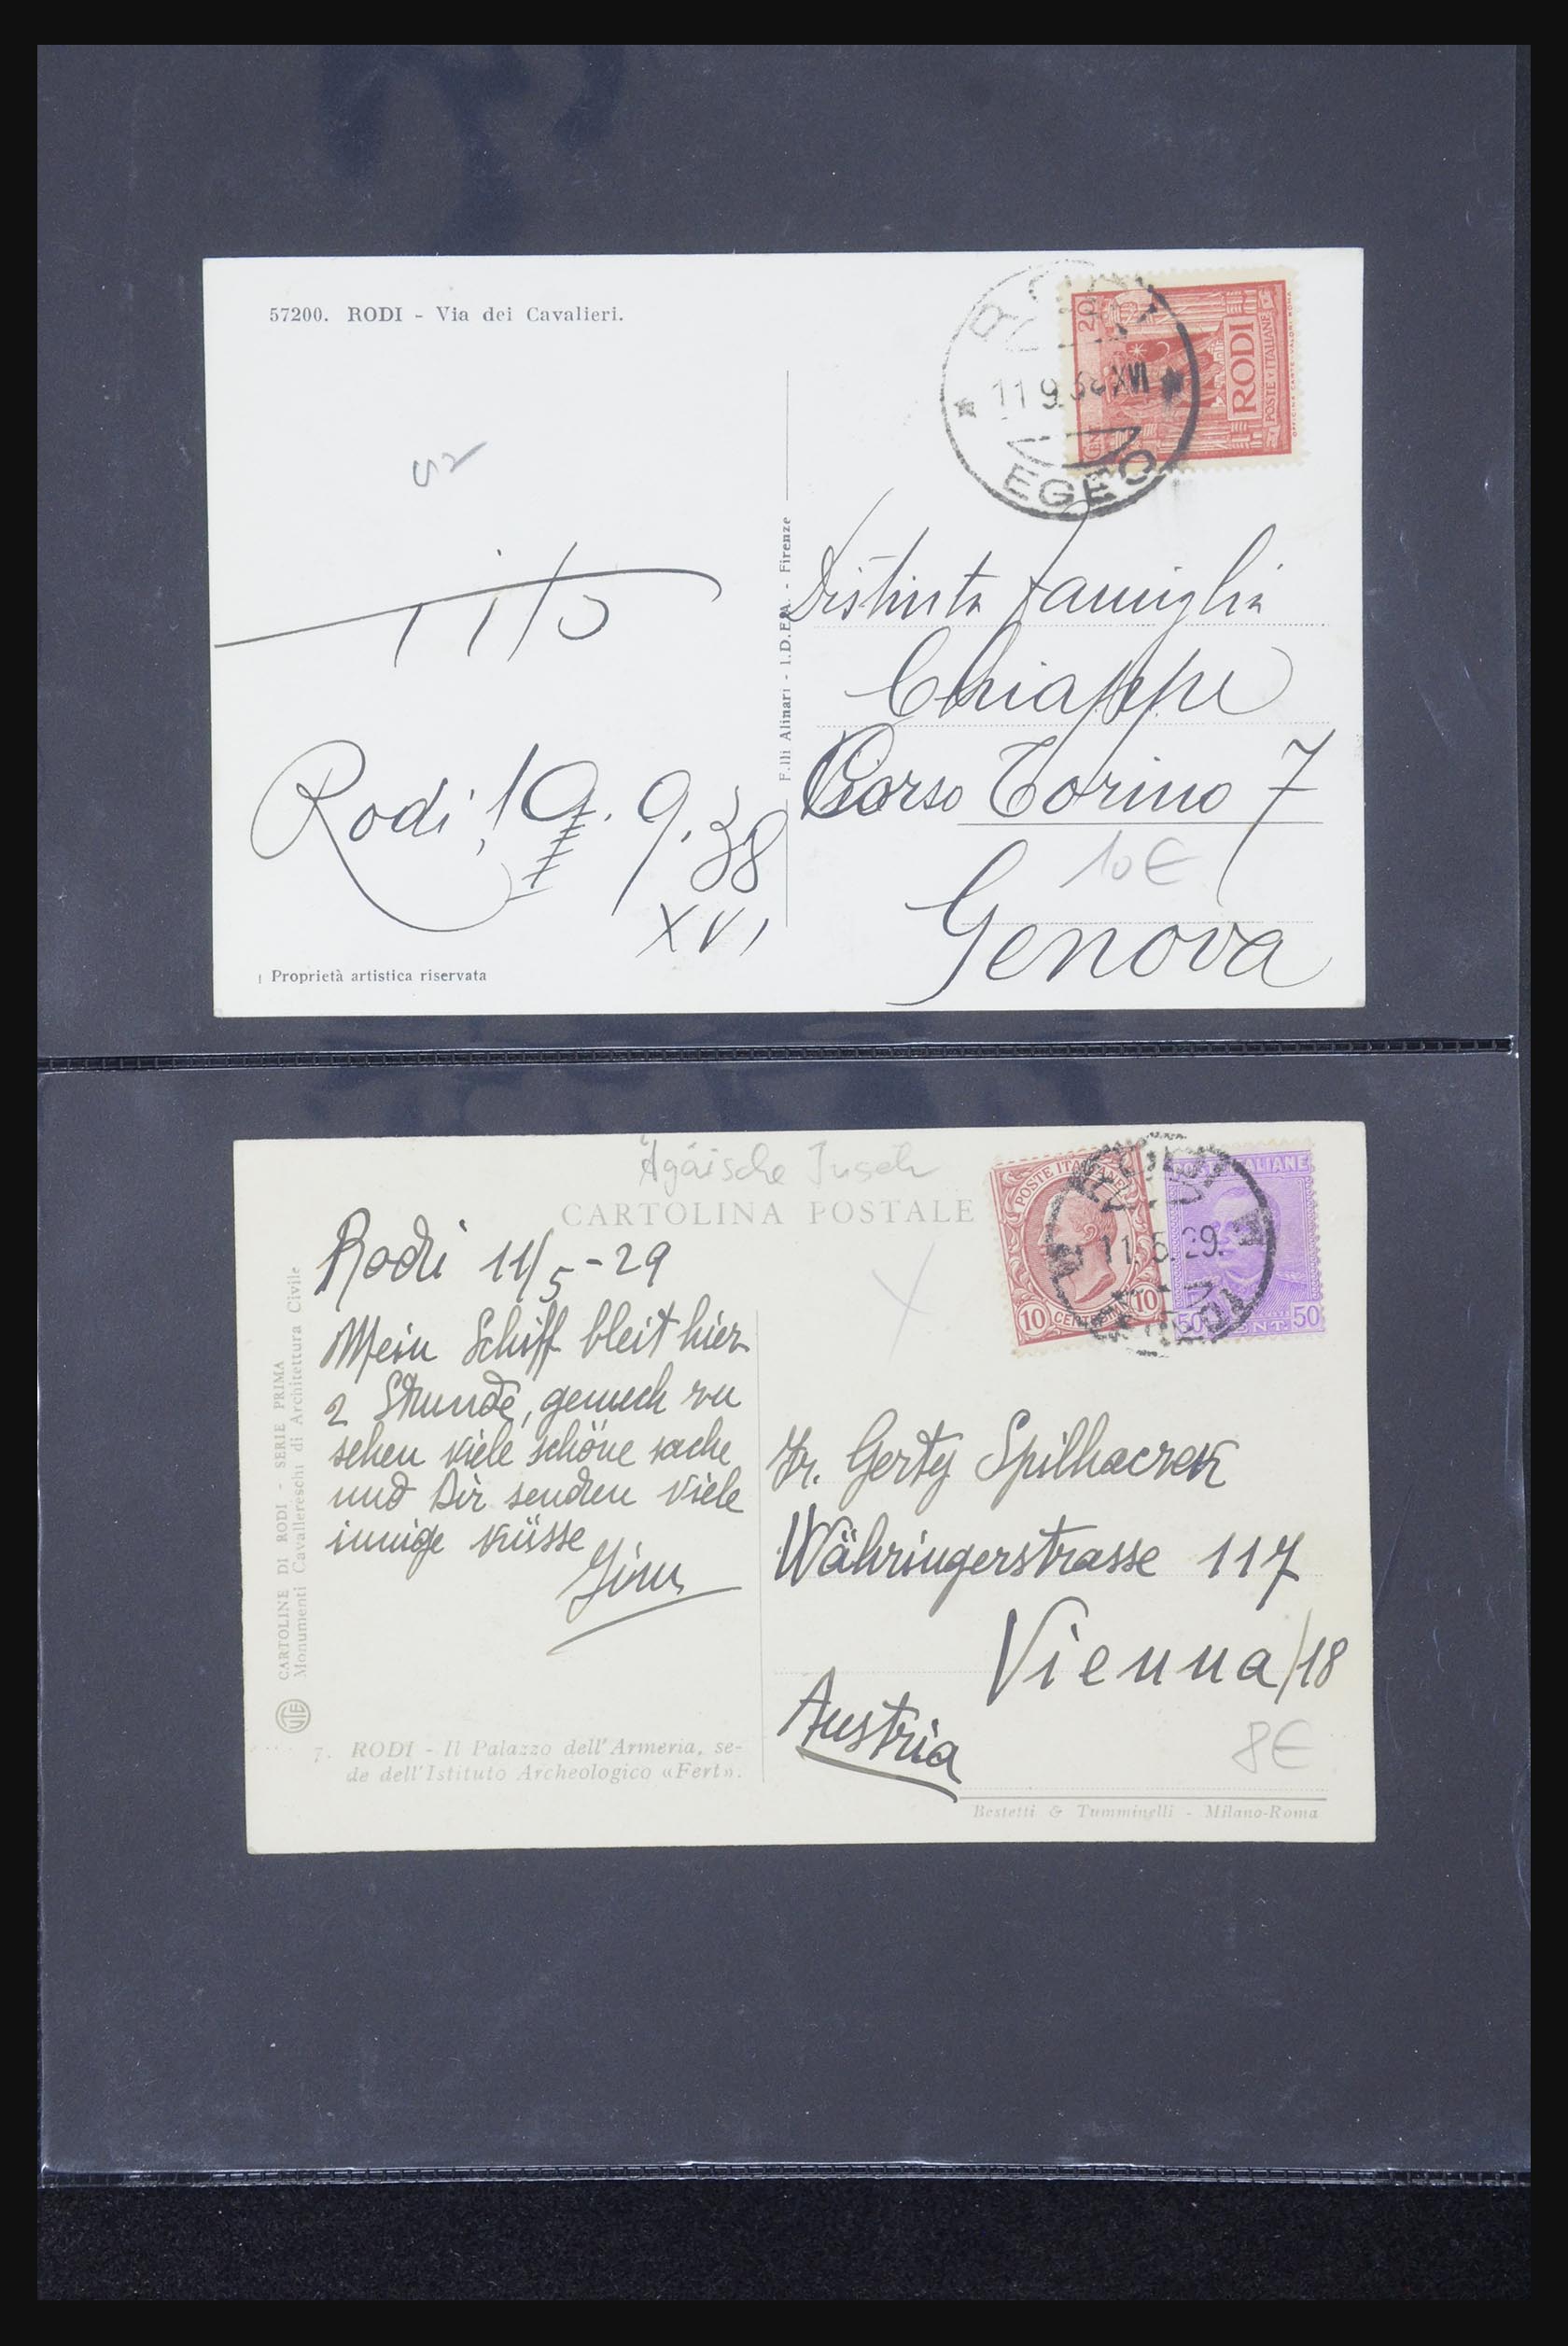 57200. RODI - Via dei Cavalieri.
RODI
11 9 38 XVI
EGEO
20
CENT
RODI
POSTE ITALIANE
OFFICINA CARTE VALORI ROMA
Tito
Rodi, 19. 9. 38
XVI
Proprietà artistica riservata
F.lli Alinari - I.D.E.A. - Firenze
Distinta famiglia
Chiappe
Corso Torino 7
10€
Genova
Ägäische Inseln
CARTOLINA POSTALE
POSTE ITALIANE
10 CENTESIMI 10
POSTE ITALIANE
50 CENT. 50
RODI
11.5.29.
Rodi 11/5-29
Mein Schiff bleit hier
2 Stunde, genuch zu
sehen viele schöne sache
und Dir senden viele
innige küsse
CARTOLINE DI RODI - SERIE PRIMA
Monumenti Cavallereschi di Architettura Civile
7. RODI - Il Palazzo dell'Armeria, se-
de dell'Istituto Archeologico «Fert».
Fr. Gerty Spilhaczek
Währingerstrasse 117
Vienna/18
Austria
8€
Bestetti & Tumminelli - Milano-Roma